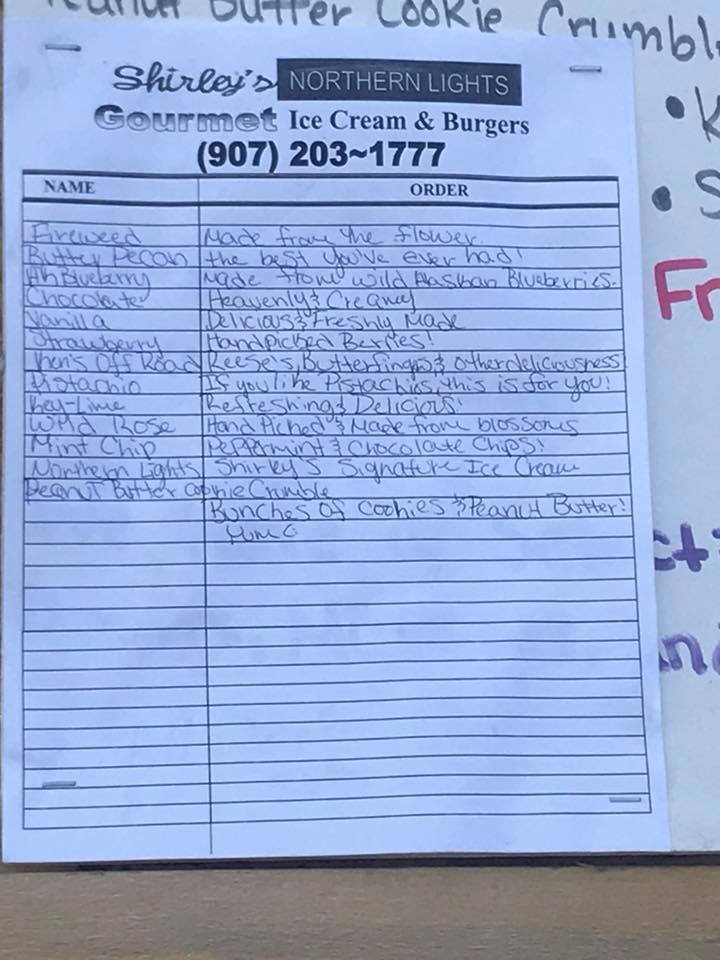 Peanut Butter Cookie Crumbl
Shirley's NORTHERN LIGHTS
Gourmet Ice Cream & Burgers
(907) 203~1777
NAME ORDER
Fireweed Made from the flower
Butter Pecan the best you've ever had!
Ah Blueberry Made from wild Alaskan Blueberries.
Chocolate Heavenly & Creamy
Vanilla Delicious & Freshly Made
Strawberry Handpicked Berries!
Ken's Off Road Reese's, Butterfingers & other deliciousness
Pistachio If you like Pistachios, this is for you!
Key-Lime Refreshing & Delicious!
Wild Rose Hand Picked & Made from blossoms
Mint Chip Peppermint & Chocolate Chips!
Northern Lights Shirley's Signature Ice Cream
Peanut Butter Cookie Crumble
Bunches of Cookies & Peanut Butter!
Yum
• K
• S
Fr
ct
nd